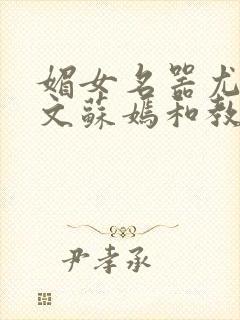 媚女名器尤
文蘇媽和教
尹孝承